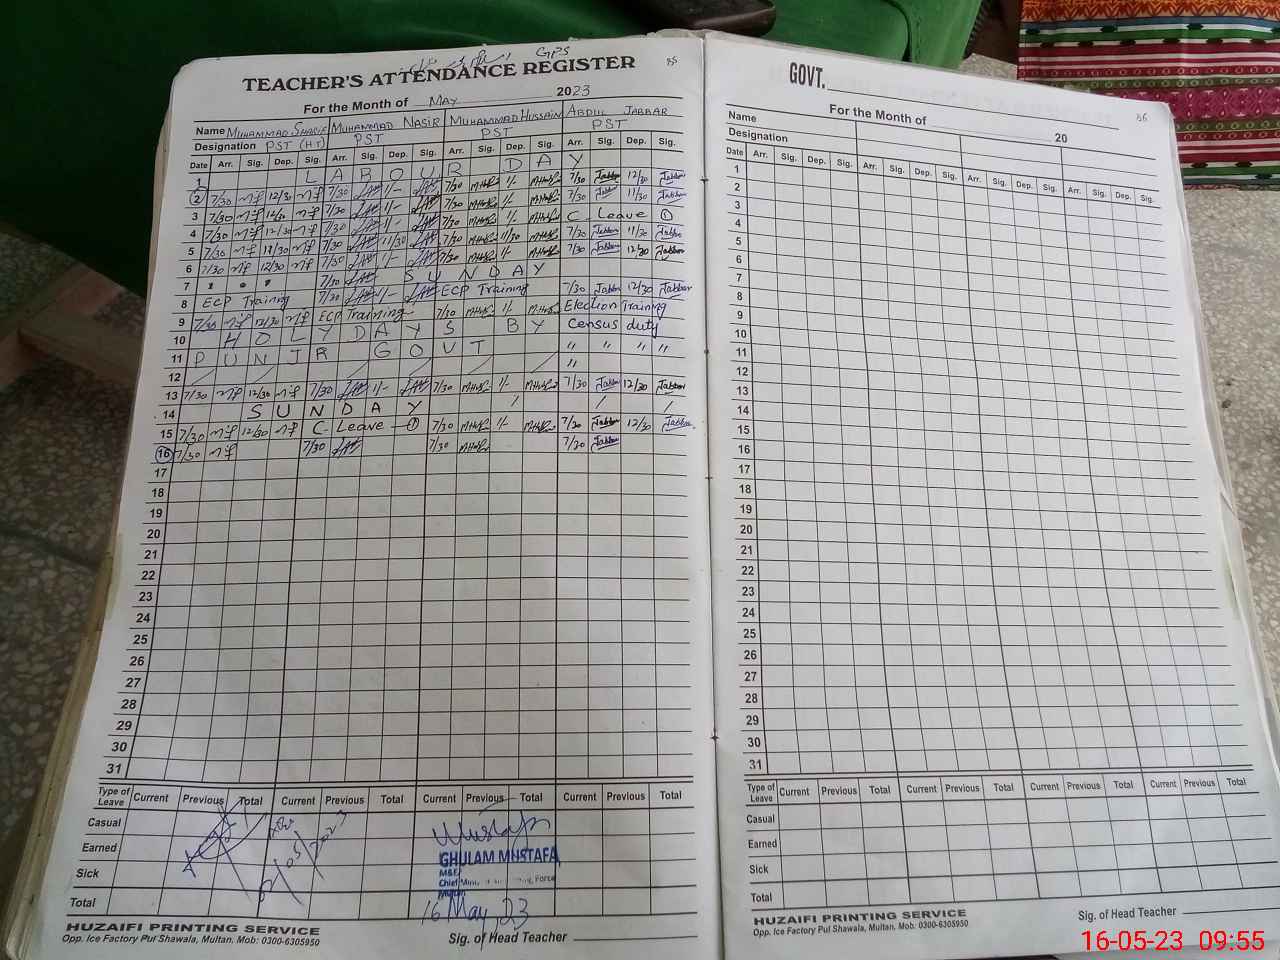 GPS
TEACHER'S ATTENDANCE REGISTER 85
For the Month of May 2023
Name MUHAMMAD SHARIF MUHAMMAD NASIR MUHAMMAD HUSSAIN ABDUL JABBAR
Designation PST (HT) PST PST PST
Date Arr. Sig. Dep. Sig. Arr. Sig. Dep. Sig. Arr. Sig. Dep. Sig. Arr. Sig. Dep. Sig.
1 LABOUR DAY
2 7/30 12/30 7/30 1/- 7/30 1/- 7/30 Jabbar 12/30 Jabbar
3 7/30 12/30 7/30 1/- 7/30 1/- 7/30 Jabbar 11/30 Jabbar
4 7/30 12/30 7/30 1/- 7/30 1/- C Leave ①
5 7/30 7/30 11/30 7/30 11/30 7/30 Jabbar 11/30 Jabbar
6 7/30 12/30 7/30 1/- 7/30 1/- 7/30 Jabbar 12/30 Jabbar
7 7/30 SUNDAY
8 ECP Training 7/30 1/- ECP Training 7/30 Jabbar 12/30 Jabbar
9 7/30 12/30 ECP Training 7/30 1/- Election Training
10 HOLYDAYS BY Census duty
11 PUNJR GOUT " " " "
12 "
13 7/30 12/30 7/30 1/- 7/30 1/- 7/30 Jabbar 12/30 Jabbar
14 SUNDAY
15 7/30 12/30 C Leave ① 7/30 1/- 7/30 Jabbar 12/30 Jabbar
16 7/30 7/30 7/30 7/30 Jabbar
17
18
19
20
21
22
23
24
25
26
27
28
29
30
31
Type of Leave Current Previous Total Current Previous Total Current Previous Total Current Previous Total
Casual
Earned
Sick
Total
Mustafa
GHULAM MUSTAFA
M&E
Chief Force
16 May 23
HUZAIFI PRINTING SERVICE
Opp. Ice Factory Pul Shawala, Multan. Mob: 0300-6305950
Sig. of Head Teacher
GOVT. 86
For the Month of 20
Name
Designation
Date Arr. Sig. Dep. Sig. Arr. Sig. Dep. Sig. Arr. Sig. Dep. Sig. Arr. Sig. Dep. Sig.
1
2
3
4
5
6
7
8
9
10
11
12
13
14
15
16
17
18
19
20
21
22
23
24
25
26
27
28
29
30
31
Type of Leave Current Previous Total Current Previous Total Current Previous Total Current Previous Total
Casual
Earned
Sick
Total
HUZAIFI PRINTING SERVICE
Opp. Ice Factory Pul Shawala, Multan. Mob: 0300-6305950
Sig. of Head Teacher
16-05-23 09:55